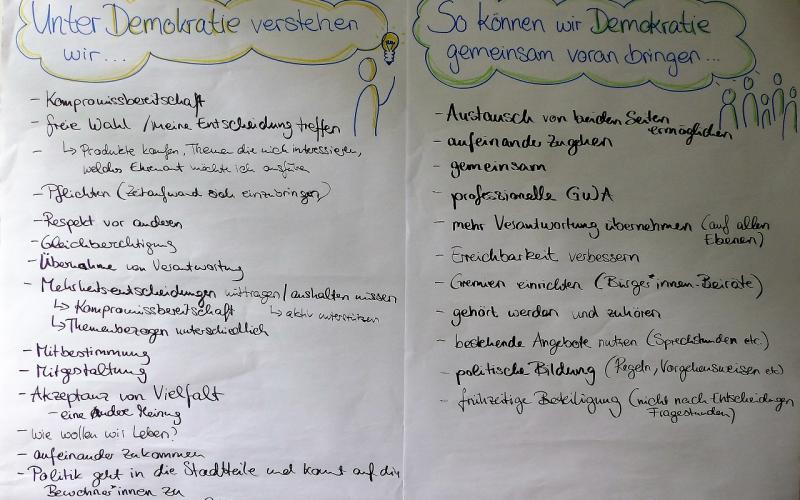 Unter Demokratie verstehen
wir...
- Kompromissbereitschaft
- freie Wahl / meine Entscheidung treffen
- ↳ Produkte kaufen, Themen die mich interessieren,
welches Ehrenamt möchte ich ausführen
- Pflichten (Zeitaufwand sich einzubringen)
- Respekt vor anderen
- Gleichberechtigung
- Übernahme von Verantwortung
- Mehrheitsentscheidungen mittragen / aushalten müssen
↳ Kompromissbereitschaft ↳ aktiv unterstützen
↳ Themenbezogen unterschiedlich
- Mitbestimmung
- Mitgestaltung
- Akzeptanz von Vielfalt
- eine andere Meinung
- Wie wollen wir Leben?
- aufeinander zukommen
- Politik geht in die Stadtteile und kommt auf die
Bewohner*innen zu
So können wir Demokratie
gemeinsam voran bringen...
- Austausch von beiden Seiten
ermöglichen
- aufeinander zugehen
- gemeinsam
- professionelle GWA
- mehr Verantwortung übernehmen (auf allen
Ebenen)
- Erreichbarkeit verbessern
- Gremien einrichten (Bürger*innen-Beiräte)
- gehört werden und zuhören
- bestehende Angebote nutzen (Sprechstunden etc.)
- politische Bildung (Regeln, Vorgehensweisen etc)
- frühzeitige Beteiligung (nicht nach Entscheidungen
Fragestunden)